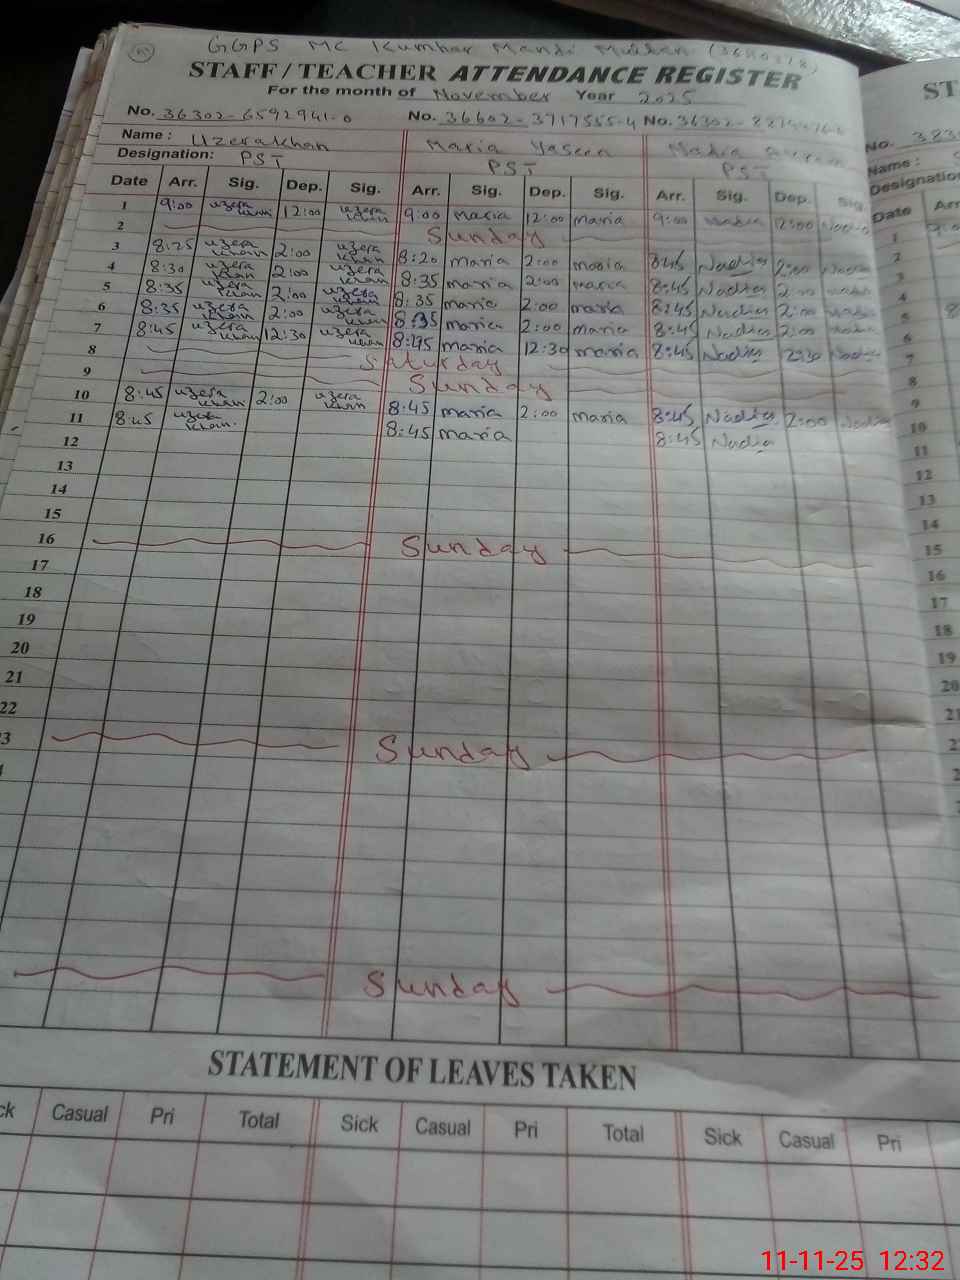 GGPS MC Kumhar Mandi Multan
STAFF / TEACHER ATTENDANCE REGISTER
For the month of November Year 2025
No. 36302-6592941-0 No. 36602-3717555-4 No. 36302-
Name: Uzerakhan Maria Yaseen Nadia
Designation: PST PST PST
Date Arr. Sig. Dep. Sig. Arr. Sig. Dep. Sig. Arr. Sig. Dep. Sig.
1 9:00 uzera khan 12:00 uzera khan 9:00 maria 12:00 maria 9:00 Nadia 12:00 Nadia
2 Sunday
3 8:25 uzera khan 2:00 uzera khan 8:20 maria 2:00 maria 8:45 Nadia 2:00 Nadia
4 8:30 uzera khan 2:00 uzera khan 8:35 maria 2:00 maria 8:45 Nadia 2:00 Nadia
5 8:35 uzera khan 2:00 uzera khan 8:35 maria 2:00 maria 8:45 Nadia 2:00 Nadia
6 8:35 uzera khan 2:00 uzera khan 8:35 maria 2:00 maria 8:45 Nadia 2:00 Nadia
7 8:45 uzera khan 12:30 uzera khan 8:45 maria 12:30 maria 8:45 Nadia 12:30 Nadia
8 Saturday
9 Sunday
10 8:45 uzera khan 2:00 uzera khan 8:45 maria 2:00 maria 8:45 Nadia 2:00 Nadia
11 8:45 uzera khan. 8:45 maria 8:45 Nadia
12
13
14
15
16 Sunday
17
18
19
20
21
22
3 Sunday
Sunday
STATEMENT OF LEAVES TAKEN
ck Casual Pri Total Sick Casual Pri Total Sick Casual Pri
ST
No.
Name :
Designation
Date Arr
1
2
3
4
5
6
7
8
9
10
11
12
13
14
15
16
17
18
19
20
11-11-25 12:32